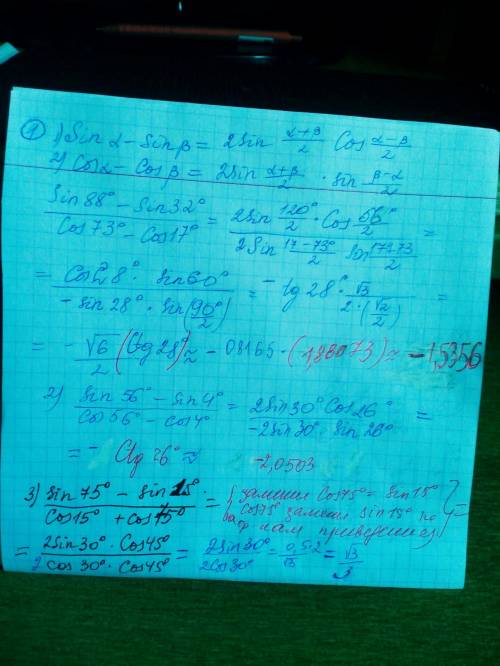 ① 1) Sin α - Sin β = 2 Sin (α+β)/2 Cos (α-β)/2
2) Cos α - Cos β = 2 Sin (α+β)/2 · sin (β-α)/2
(Sin 88° - Sin 32°)/(Cos 73° - Cos 17°) = (2 Sin 120°/2 · Cos 56°/2)/(2 Sin (17-73°)/2 Sin (17+73)/2) =
= (Cos 28° · Sin 60°)/(- sin 28° · Sin (90°/2)) = - tg 28° · √3/(2·(√2/2)) =
= - √6/2 (Ctg 28°) ≈ - 08165 · (1,88073) ≈ - 1,5356
2) (sin 56° - sin 4°)/(Cos 56° - Cos 4°) = (2 Sin 30° Cos 26°)/(-2 Sin 30° · Sin 26°) =
= - Ctg 26° ≈ -2,0503
3) (sin 75° - sin 15°)/(Cos 15° + Cos 75°) = { заменим Cos 75° = Sin 15° } =
Cos 75° заменим Sin 15° по
формулам приведения
= (2 Sin 30° · Cos 45°)/(2 Cos 30° · Cos 45°) = (2 Sin 30°)/(2 Cos 30°) = (0,5·2)/√3 = √3/3